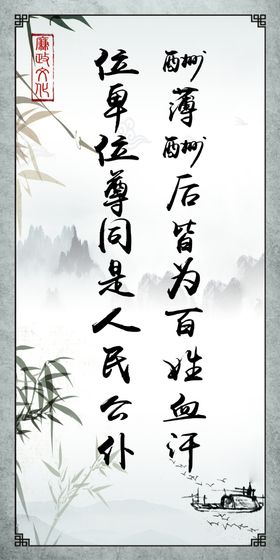 酬薄酬后皆为百姓血汗
位卑位尊同是人民公仆
廉政文化